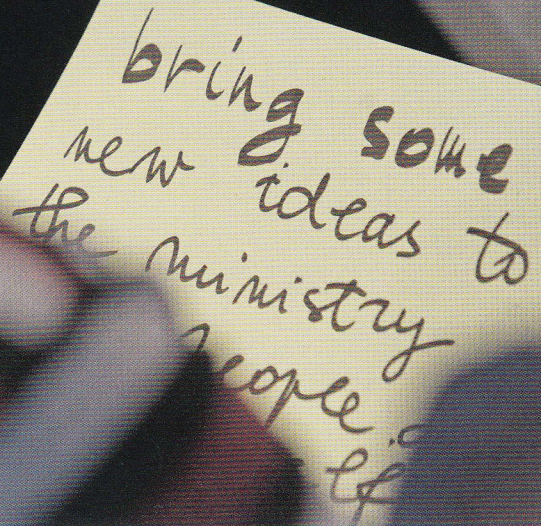 bring some
new ideas to
the ministry
people